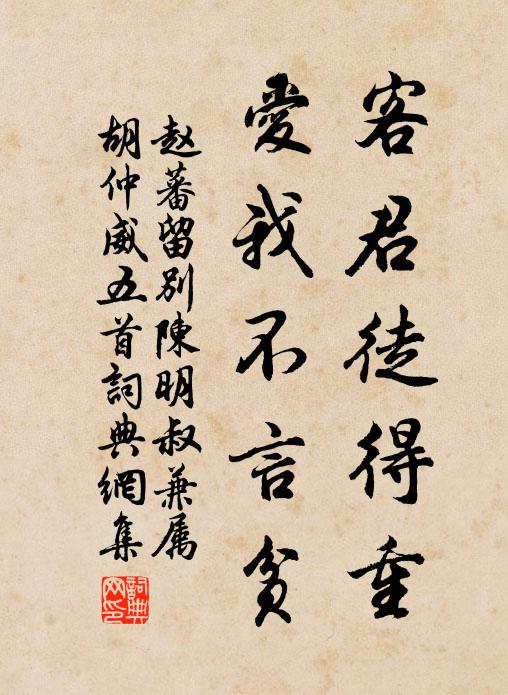 客君徒得重
愛我不言貧
赵蕃留别陳明叔兼属
胡仲威五首詞典網集
詞典
网印